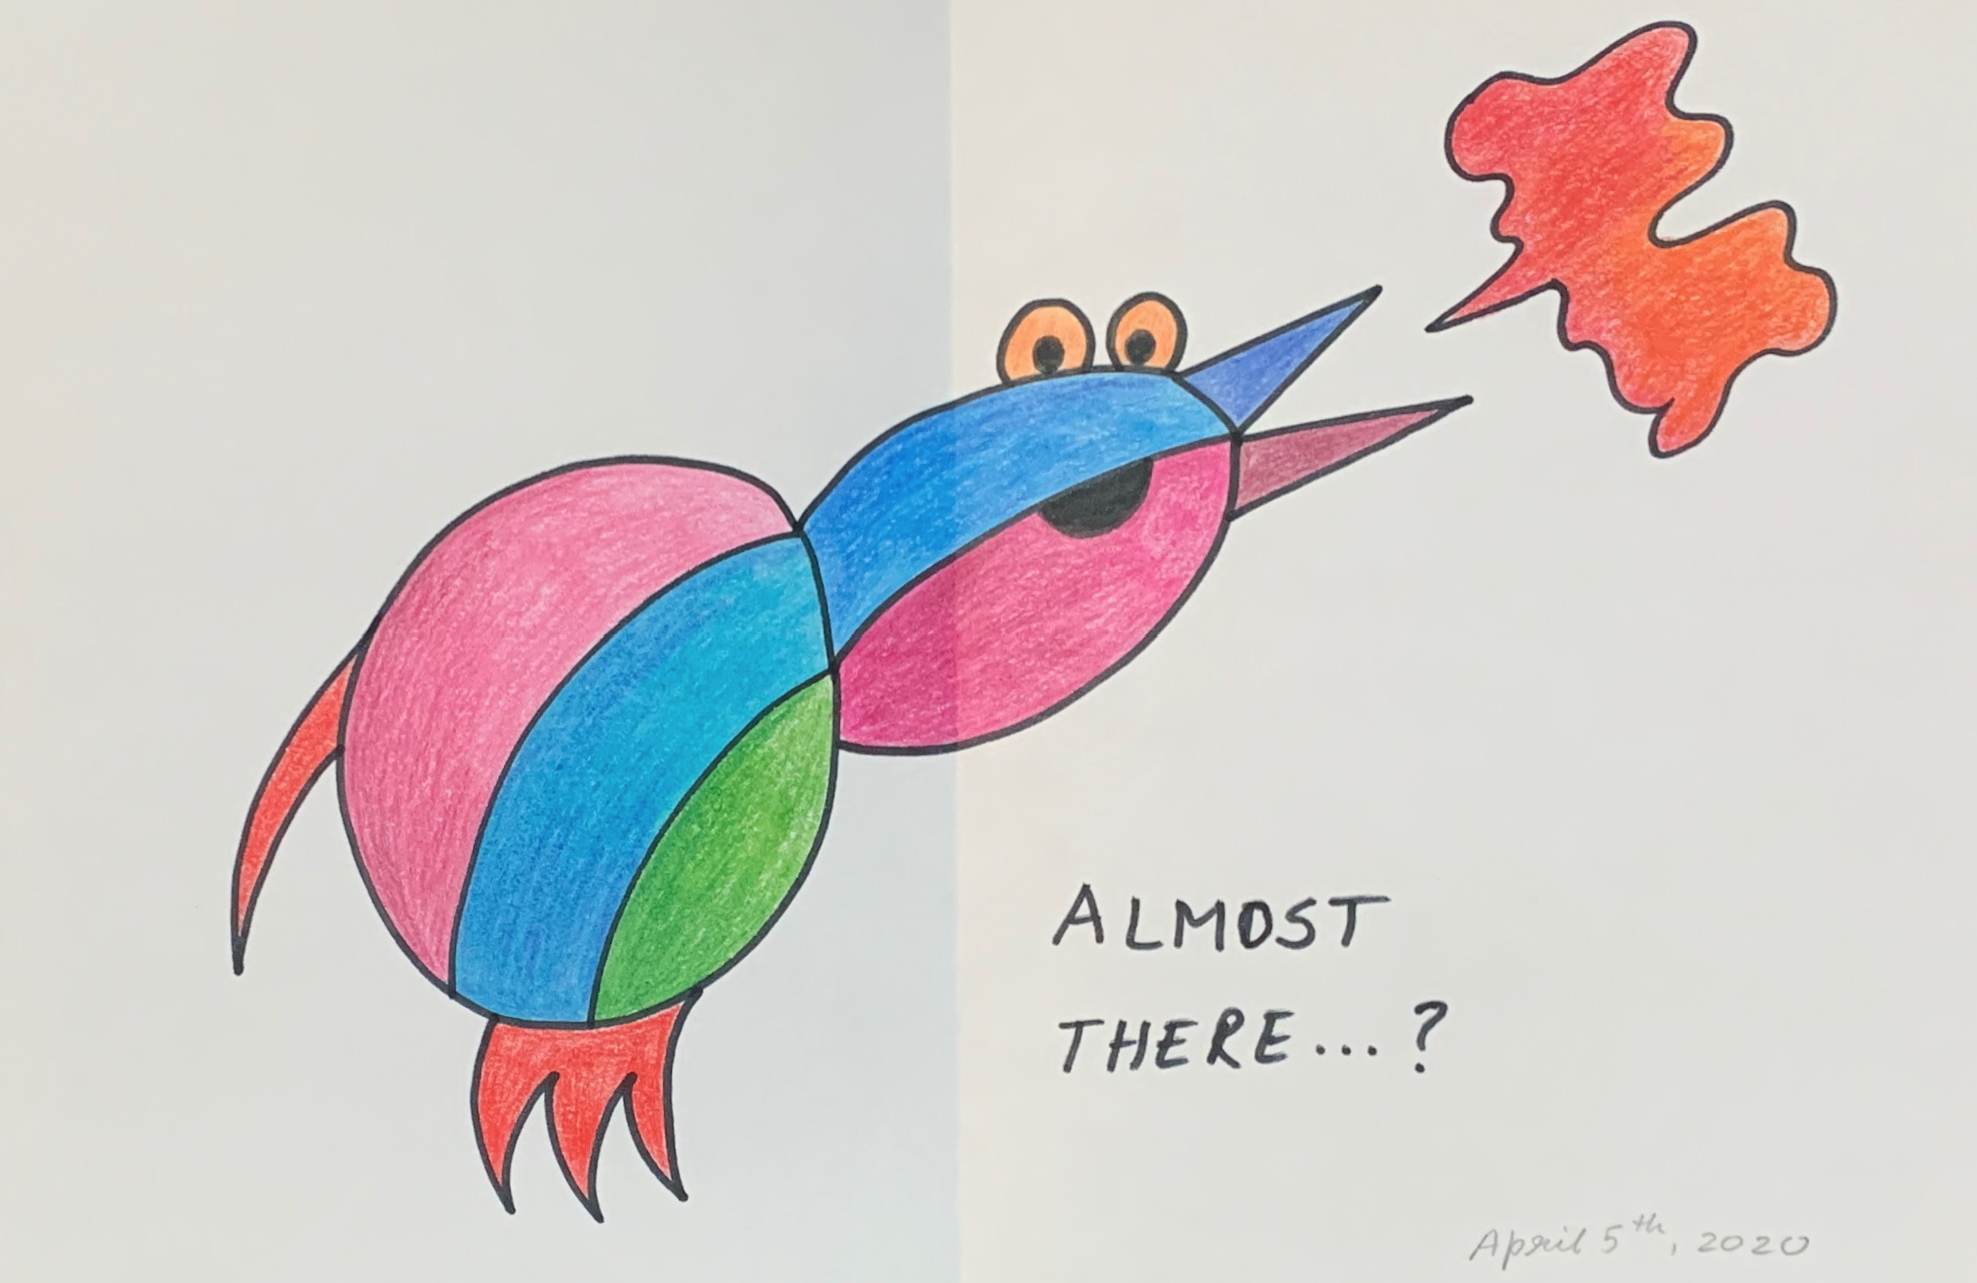 ALMOST
THERE...?
April 5th, 2020